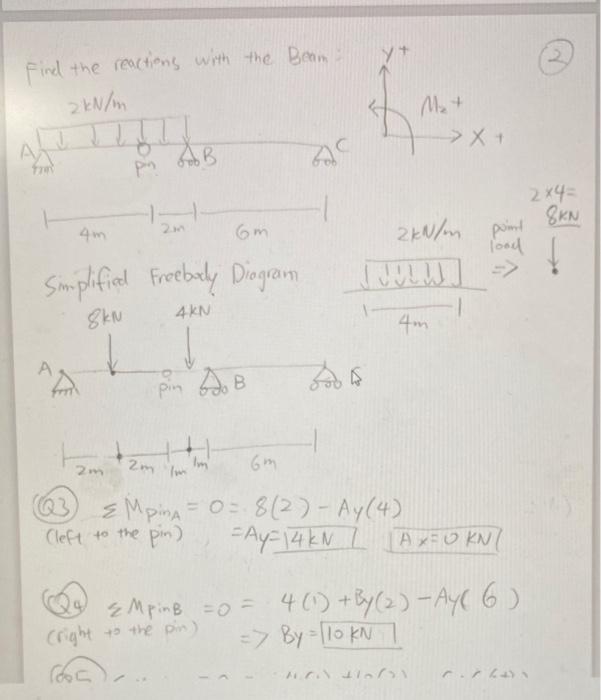 Find the reactions with the Beam:
2
Y+
Mz+
X+
2kN/m
A
pin
B
C
4m
2m
6m
2×4=
8KN
2kN/m
point
load
=>
4m
Simplified Freebody Diagram
8kN
4kN
A
pin
B
2m
2m
1m
1m
6m
Q3 ΣMpinA = 0 = 8(2) - Ay(4)
(left to the pin) = Ay = 4kN Ax=0 KN
Q4 ΣMpinB =0 = 4(1) + By(2) - Ay(6)
(right to the pin) => By = 10 KN